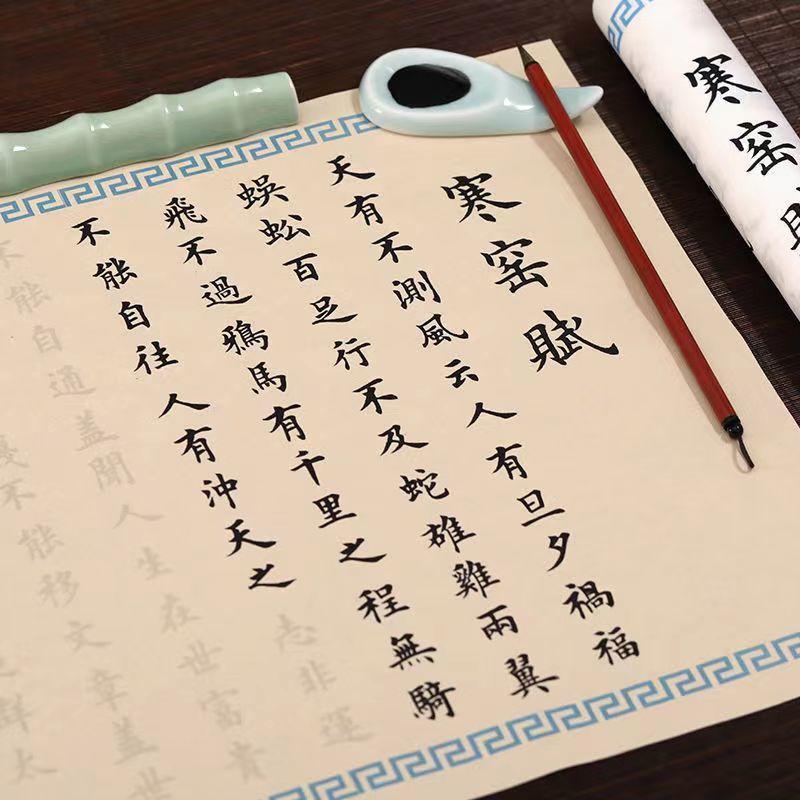 寒窑
寒窑賦
天有不測風云人有旦夕禍福
蜈蚣百足行不及蛇雄雞兩翼
飛不過鴉馬有千里之程無騎
不能自往人有沖天之志非運
不能自通盖聞人生在世富貴
不能移文章盖世
太